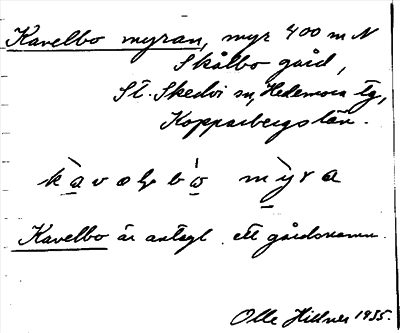 Kavelbo myran, myr 400 m N
Skålbo gård,
St. Skedvi sn, Hedemora tg,
Kopparbergs län.
kavəlbo myra
Kavelbo är antagl. ett gårdsnamn.
Olle Hillner 1935.